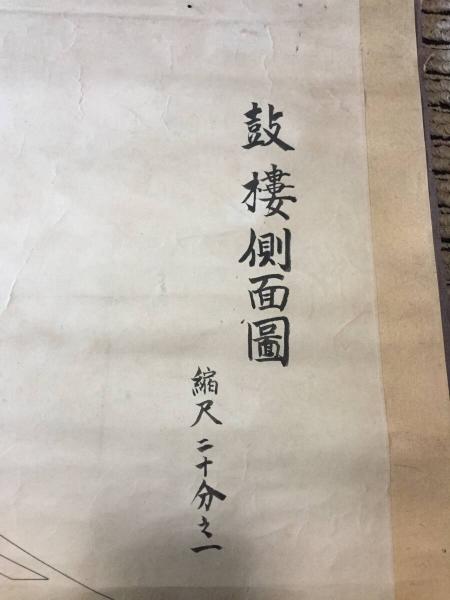 鼓樓側面圖
縮尺二十分之一